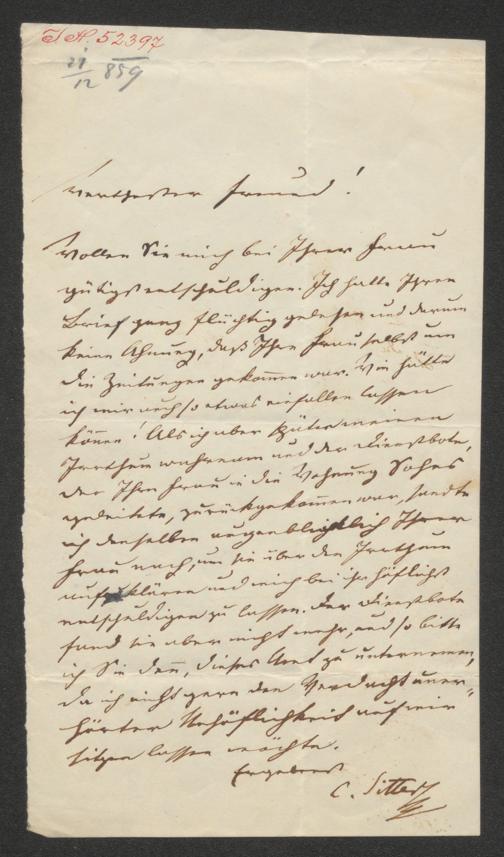 I. N. 52397
21/12 859
Werthester Freund!
Wollen Sie mich bei Ihrer Frau
gütigst entschuldigen. Ich hatte Ihren
Brief ganz flüchtig gelesen und darum
keine Ahnung, daß Ihre Frau selbst um
die Zeitungen gekommen war. Wie hätte
ich mir auch so etwas einfallen lassen
können! Als ich aber später meinen
Irrthum wahrnam und der Dienstbote,
der Ihre Frau in die Wohnung
geleitete, zurückgekommen war, sandte
ich denselben augenblicklich Ihrer
Frau nach, um sie über den Irrthum
aufzuklären und mich bei ihr höflichst
entschuldigen zu lassen. Der Dienstbote
fand sie aber nicht mehr, und so bitte
ich Sie denn, dieses Amt zu unternemen,
da ich nicht gern den Verdacht uner-
hörter Unhöflichkeit auf mir
sitzen lassen möchte.
Ergebenst
C.